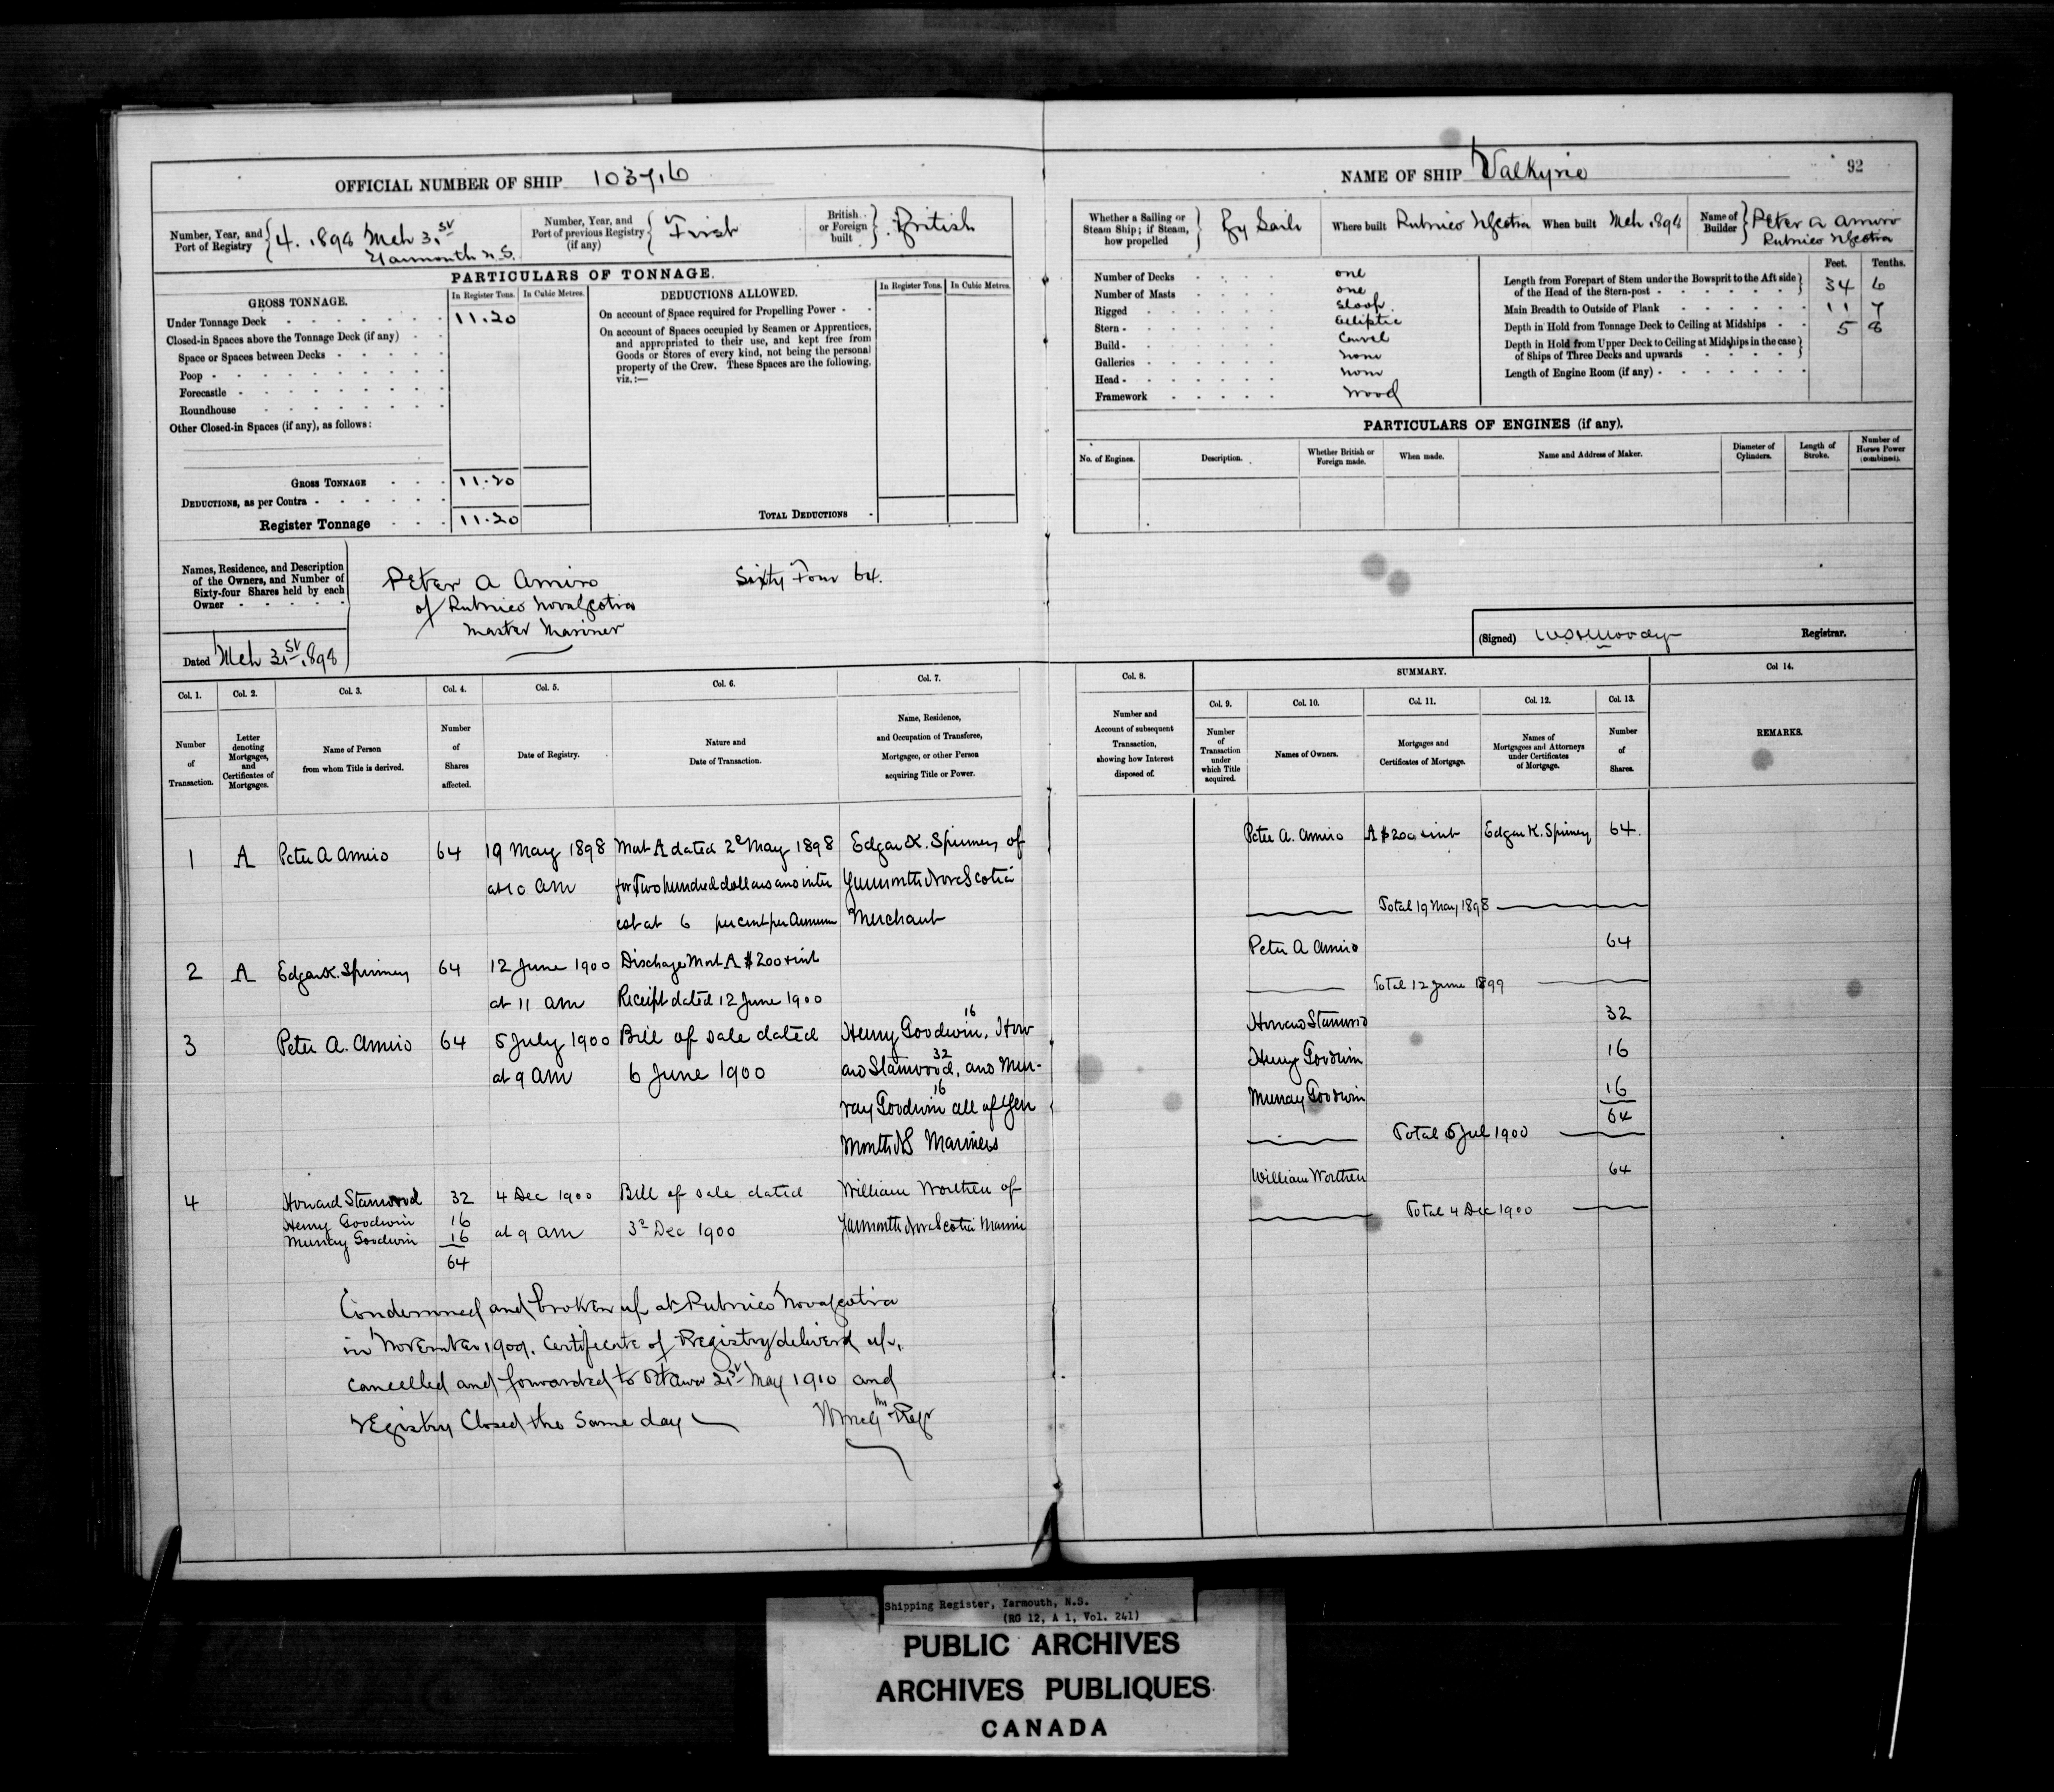 OFFICIAL NUMBER OF SHIP 103716
NAME OF SHIP Valkyrie
92
Number, Year, and Port of Registry
4. 1898 Mch 31st
Yarmouth N.S.
Number, Year, and Port of previous Registry (if any)
First
British or Foreign built
British
Whether a Sailing or Steam Ship; if Steam, how propelled
By Sails
Where built Pubnico N Scotia
When built Mch 1898
Name of Builder
Peter A Amiro
Pubnico N Scotia
PARTICULARS OF TONNAGE.
GROSS TONNAGE.
In Register Tons.
In Cubic Metres.
DEDUCTIONS ALLOWED.
In Register Tons.
In Cubic Metres.
Under Tonnage Deck 11.20
Closed-in Spaces above the Tonnage Deck (if any)
Space or Spaces between Decks
Poop
Forecastle
Roundhouse
Other Closed-in Spaces (if any), as follows:
GROSS TONNAGE 11.20
DEDUCTIONS, as per Contra
Register Tonnage 11.20
On account of Space required for Propelling Power
On account of Spaces occupied by Seamen or Apprentices,
and appropriated to their use, and kept free from
Goods or Stores of every kind, not being the personal
property of the Crew. These Spaces are the following,
viz.:—
TOTAL DEDUCTIONS
Number of Decks one
Number of Masts one
Rigged Sloop
Stern Elliptic
Build Carvel
Galleries none
Head none
Framework Wood
Feet. Tenths.
Length from Forepart of Stem under the Bowsprit to the Aft side
of the Head of the Stern-post 34 6
Main Breadth to Outside of Plank 11 7
Depth in Hold from Tonnage Deck to Ceiling at Midships 5 8
Depth in Hold from Upper Deck to Ceiling at Midships in the case
of Ships of Three Decks and upwards
Length of Engine Room (if any)
PARTICULARS OF ENGINES (if any).
No. of Engines.
Description.
Whether British or Foreign made.
When made.
Name and Address of Maker.
Diameter of Cylinders.
Length of Stroke.
Number of Horses Power (combined).
Names, Residence, and Description
of the Owners, and Number of
Sixty-four Shares held by each
Owner
Peter A Amiro Sixty Four 64.
of Pubnico Nova Scotia
Master Mariner
Dated Mch 31st 1898
(Signed) Registrar.
Col. 1. Col. 2. Col. 3. Col. 4. Col. 5. Col. 6. Col. 7.
Number of Transaction.
Letter denoting Mortgages, and Certificates of Mortgages.
Name of Person from whom Title is derived.
Number of Shares affected.
Date of Registry.
Nature and Date of Transaction.
Name, Residence, and Occupation of Transferee, Mortgagee, or other Person acquiring Title or Power.
Col. 8.
SUMMARY.
Col 14.
Col. 9. Col. 10. Col. 11. Col. 12. Col. 13.
Number and Account of subsequent Transaction, showing how Interest disposed of.
Number of Transaction under which Title acquired.
Names of Owners.
Mortgages and Certificates of Mortgage.
Names of Mortgagees and Attorneys under Certificates of Mortgage.
Number of Shares.
REMARKS.
1 A Peter A Amiro 64 19 May 1898 Mort A dated 2d May 1898 Edgar K. Spinney of
at 10 am for Two hundred dollars and inter Yarmouth Nova Scotia
est at 6 per cent per Annum Merchant
2 A Edgar K. Spinney 64 12 June 1900 Discharge Mort A $200 & int
at 11 am Receipt dated 12 June 1900
3 Peter A. Amiro 64 5 July 1900 Bill of sale dated Henry Goodwin, 16 How
at 9 am 6 June 1900 ard Stanwood, 32 and Mur-
ray Goodwin 16 all of Yar
mouth NS Mariners
4 Howard Stanwood 32 4 Dec 1900 Bill of sale dated William Worthen of
Henry Goodwin 16 at 9 am 3d Dec 1900 Yarmouth Nova Scotia Marine
Murray Goodwin 16
64
Peter A. Amiro A $200 & int Edgar K. Spinney 64.
Total 19 May 1898
Peter A Amiro 64
Total 12 June 1899
Howard Stanwood 32
Henry Goodwin 16
Murray Goodwin 16
64
Total 5 Jul 1900
William Worthen 64
Total 4 Dec 1900
Condemned and broken up at Pubnico Nova Scotia
in November 1909. Certificate of Registry delivered up,
cancelled and forwarded to Ottawa 21st May 1910 and
registry Closed the same day Regr
Shipping Register, Yarmouth, N.S.
(RG 12, A 1, Vol. 241)
PUBLIC ARCHIVES
ARCHIVES PUBLIQUES
CANADA